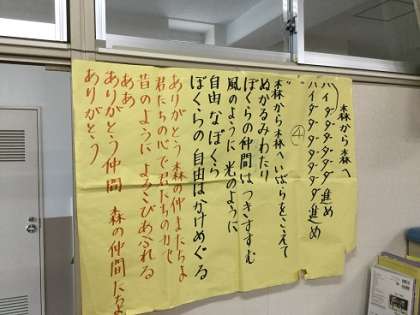 森から森へ
ハイダダダダダ進め
ハイダダダダダダ進め
④
森から森へいばらをこえて
ぬかるみわたり
ぼくらの仲間はつきすすむ
風のように光のように
自由なぼくら
ぼくらの自由はかけめぐる
ありがとう 森の仲またちよ
君たちの心で 君たちの力で
昔のように よろこびあふれる
ああ
ありがとう仲間 森の仲間たちよ
ありがとう